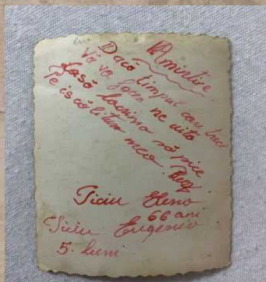 Amintire.
Dacă timpul care trece
Vă va face ne uita
Lasă lacrima să pice
Pe iscălitura mea.
Ticiu Elena
66 ani
Ticiu Eugenia
5. luni